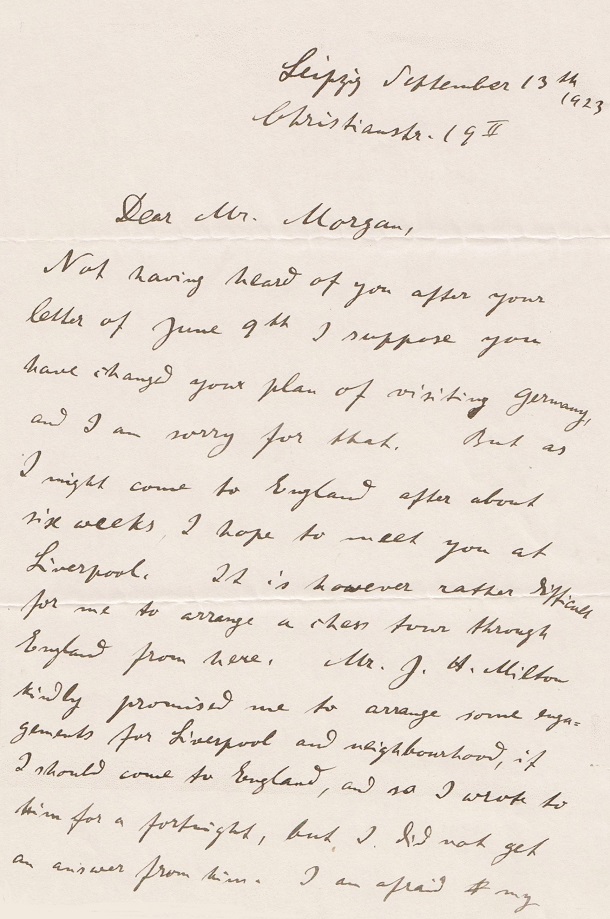 Leipzig September 13th
1923
Christianstr. 19 II
Dear Mr. Morgan,
Not having heard of you after your
letter of June 9th I suppose you
have changed your plan of visiting Germany,
and I am sorry for that. But as
I might come to England after about
six weeks, I hope to meet you at
Liverpool. It is however rather difficult
for me to arrange a chess tour through
England from here. Mr. J. H. Milton
kindly promised me to arrange some enga-
gements for Liverpool and neighbourhood, if
I should come to England, and so I wrote to
him for a fortnight, but I did not get
an answer from him. I am afraid my